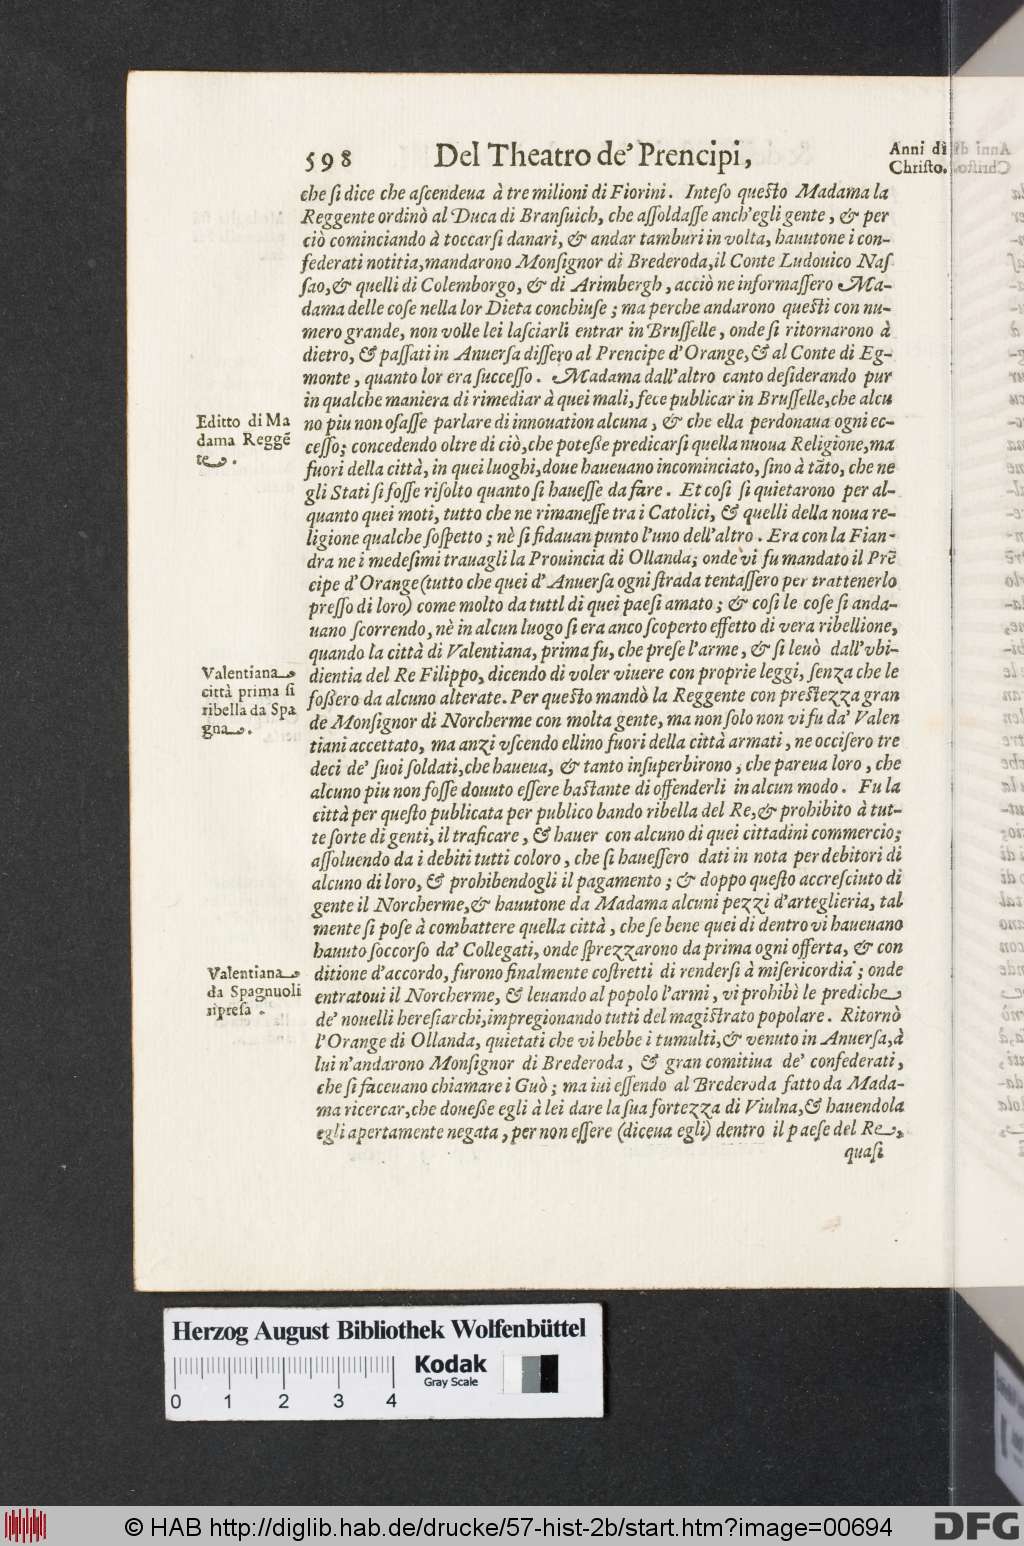 598 Del Theatro de' Prencipi, Anni di
Christo.
che si dice che ascendeua à tre milioni di Fiorini. Inteso questo Madama la
Reggente ordinò al Duca di Bransuich, che assoldasse anch'egli gente, & per
ciò cominciando à toccarsi danari, & andar tamburi in volta, hauutone i con-
federati notitia, mandarono Monsignor di Brederoda, il Conte Ludouico Nas
sao, & quelli di Colemborgo, & di Arimbergh, acciò ne informassero Ma-
dama delle cose nella lor Dieta conchiuse; ma perche andarono questi con nu-
mero grande, non volle lei lasciarli entrar in Brusselle, onde si ritornarono à
dietro, & passati in Anuersa dissero al Prencipe d'Orange, & al Conte di Eg-
monte, quanto lor era successo. Madama dall'altro canto desiderando pur
in qualche maniera di rimediar à quei mali, fece publicar in Brusselle, che alcu
Editto di Ma
dama Reggẽ
te.
no piu non osasse parlare di innouation alcuna, & che ella perdonaua ogni ec-
cesso; concedendo oltre di ciò, che potesse predicarsi quella nuoua Religione, ma
fuori della città, in quei luoghi, doue haueuano incominciato, sino à tãto, che ne
gli Stati si fosse risolto quanto si hauesse da fare. Et cosi si quietarono per al-
quanto quei moti, tutto che ne rimanesse tra i Catolici, & quelli della noua re-
ligione qualche sospetto; nè si fidauan punto l'uno dell'altro. Era con la Fian-
dra ne i medesimi trauagli la Prouincia di Ollanda; onde vi fu mandato il Prẽ
cipe d'Orange (tutto che quei d'Anuersa ogni strada tentassero per trattenerlo
presso di loro) come molto da tuttl di quei paesi amato; & cosi le cose si anda-
uano scorrendo, nè in alcun luogo si era anco scoperto effetto di vera ribellione,
quando la città di Valentiana, prima fu, che prese l'arme, & si leuò dall'vbi-
Valentiana
città prima si
ribella da Spa
gna.
dientia del Re Filippo, dicendo di voler viuere con proprie leggi, senza che le
fossero da alcuno alterate. Per questo mandò la Reggente con prestezza gran
de Monsignor di Norcherme con molta gente, ma non solo non vi fu da' Valen
tiani accettato, ma anzi vscendo ellino fuori della città armati, ne occisero tre
deci de' suoi soldati, che haueua, & tanto insuperbirono, che pareua loro, che
alcuno piu non fosse douuto essere bastante di offenderli in alcun modo. Fu la
città per questo publicata per publico bando ribella del Re, & prohibito à tut-
te sorte di genti, il traficare, & hauer con alcuno di quei cittadini commercio;
assoluendo da i debiti tutti coloro, che si hauessero dati in nota per debitori di
alcuno di loro, & prohibendogli il pagamento; & doppo questo accresciuto di
gente il Norcherme, & hauutone da Madama alcuni pezzi d'arteglieria, tal
mente si pose à combattere quella città, che se bene quei di dentro vi haueuano
hauuto soccorso da' Collegati, onde sprezzarono da prima ogni offerta, & con
Valentiana
da Spagnuoli
ripresa.
ditione d'accordo, furono finalmente costretti di rendersi à misericordia; onde
entratoui il Norcherme, & leuando al popolo l'armi, vi prohibì le prediche
de' nouelli heresiarchi, impregionando tutti del magistrato popolare. Ritornò
l'Orange di Ollanda, quietati che vi hebbe i tumulti, & venuto in Anuersa, à
lui n'andarono Monsignor di Brederoda, & gran comitiua de' confederati,
che si faceuano chiamare i Guò; ma iui essendo al Brederoda fatto da Mada-
ma ricercar, che douesse egli à lei dare la sua fortezza di Viulna, & hauendola
egli apertamente negata, per non essere (diceua egli) dentro il paese del Re,
quasi
Herzog August Bibliothek Wolfenbüttel
Kodak
Gray Scale
0 1 2 3 4
© HAB http://diglib.hab.de/drucke/57-hist-2b/start.htm?image=00694
DFG